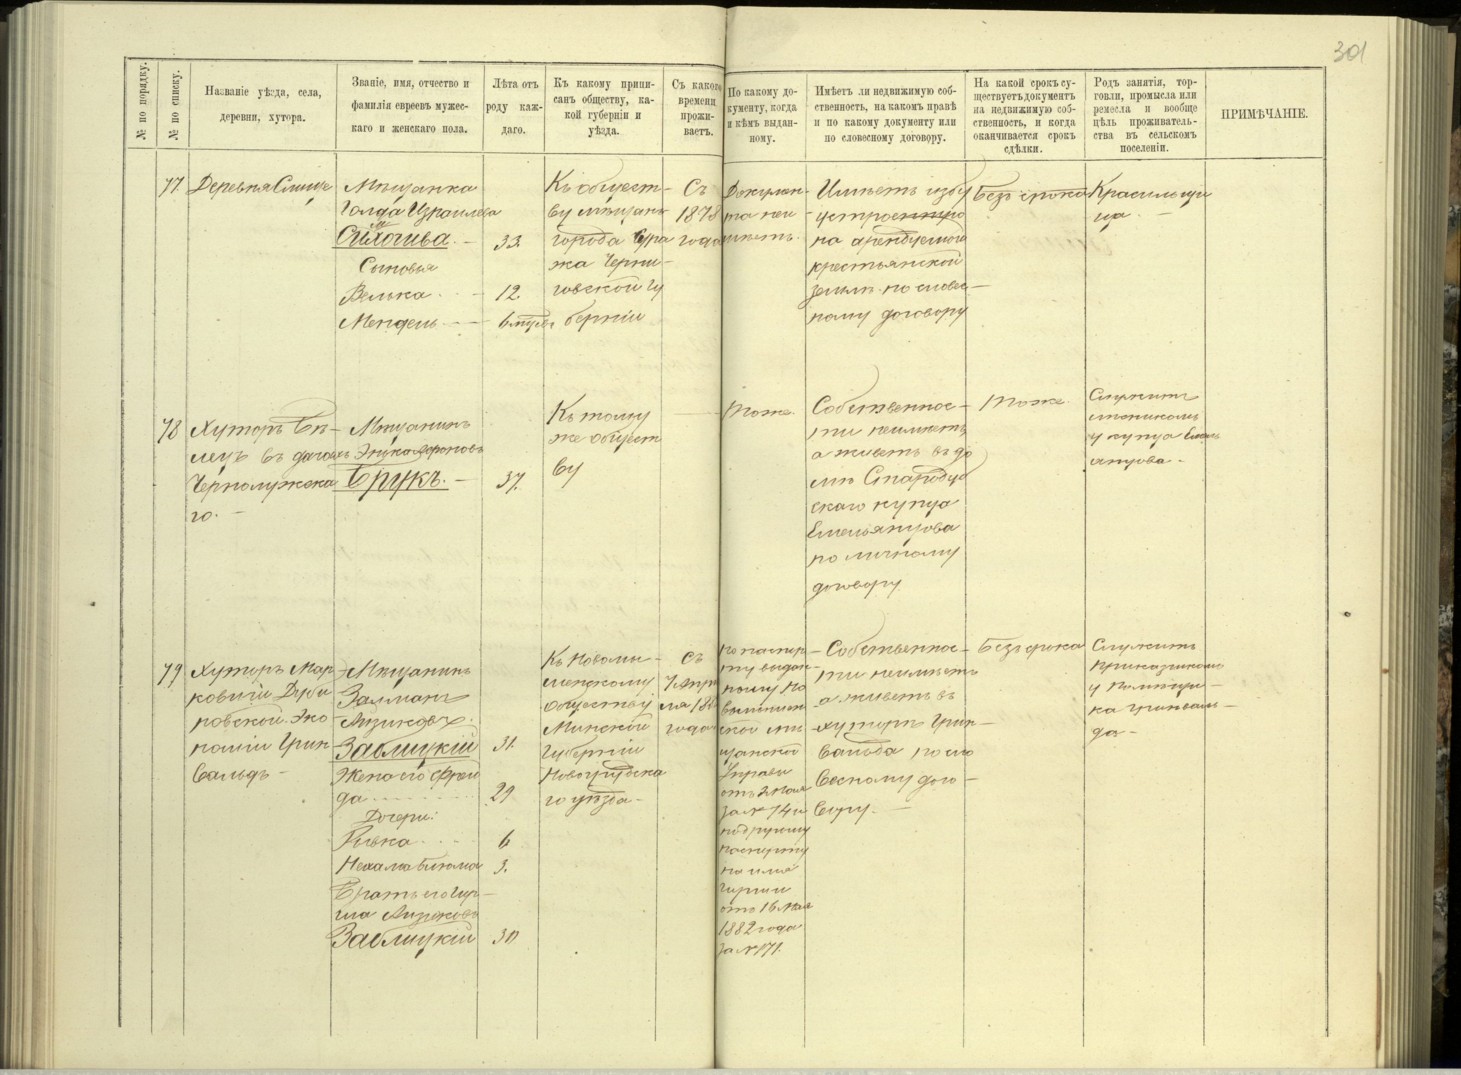 301
№ по порядку.
№ по списку.
Названіе уѣзда, села,
деревни, хутора.
Званіе, имя, отчество и
фамилія евреевъ мужес-
каго и женскаго пола.
Лѣта отъ
роду каж-
даго.
Къ какому припи-
санъ обществу, ка-
кой губерніи и
уѣзда.
Съ какого
времени
прожи-
ваетъ.
По какому до-
кументу, когда
и кѣмъ выдан-
ному.
Имѣетъ ли недвижимую соб-
ственность, на какомъ правѣ
и по какому документу или
по словесному договору.
На какой срокъ су-
ществуетъ документъ
на недвижимую соб-
ственность, и когда
оканчивается срокъ
сдѣлки.
Родъ занятія, тор-
говли, промысла или
ремесла и вообще
цѣль проживатель-
ства въ сельскомъ
поселеніи.
ПРИМѢЧАНІЕ.
77
Деревня
Мѣщанка
Голда Израилева
33.
Сыновья
Велька 12.
Мендель
Къ общест-
ву мѣщанъ
города Сура
жа Черни-
говской гу
берніи
Съ
1878
года
Докумен-
та неи
мѣетъ.
Имѣетъ избу
устроенную
на арендуемой
крестьянской
землѣ по словес-
ному договору
Безъ срока
Красильщи
ца
78
Хуторъ
въ дачахъ
го.
Мѣщанинъ
Брукъ. 37.
Къ тому
же общест
ву
Тоже.
Собственнос-
ти неимѣетъ
а живетъ въ до
мѣ Стародуб
скаго купца
Емельянцова
по личному
договору
Тоже.
Служитъ
у купца Емель
янцова
79
Хуторъ Мар
ковичи Дуби
ровской Эко
номіи Грин-
вальдъ
Мѣщанинъ
Залманъ
Айзиковъ
Заблицкій 31.
Жена его Фрей
да 29
Дочери:
Ривка 6
Нехама Блюма 3.
Братъ его Гир-
ша Айзиковъ
Заблицкій 30
Обществу
Минской
Губерніи
Новогрудска
го уѣзда
Съ
года
По паспор-
ту выдан-
ному
щанской
Управы
отъ 2 Мая
за № 74 и
подругому
паспорту
на имя
Гирши
отъ 16 Мая
1882 года
за № 171.
Собственнос-
ти неимѣетъ
а живетъ въ
хуторѣ Грин-
вальда по сло
весному дого-
вору.
Безъ срока
Служитъ
приказчикомъ
у помѣщи-
ка Гринваль-
да